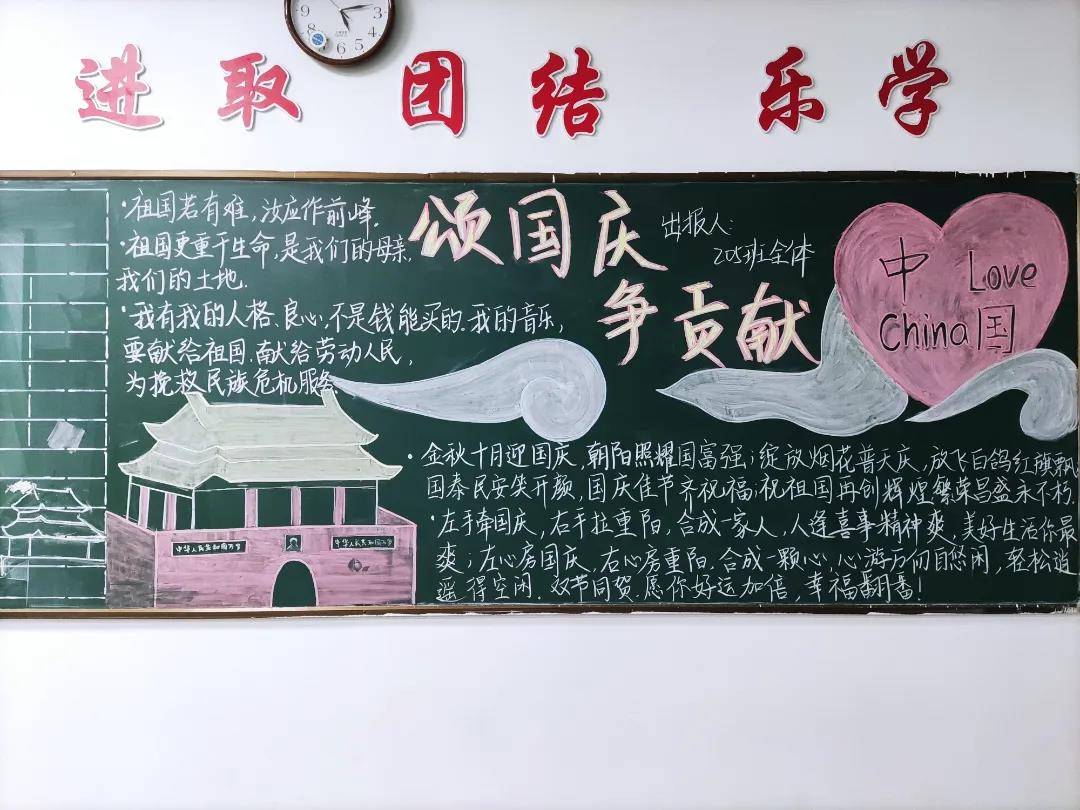 进取 团结 乐学
9 8 7 6 5 4 3
·祖国若有难,汝应作前峰.
·祖国更重于生命,是我们的母亲,
我们的土地.
·我有我的人格、良心,不是钱能买的.我的音乐,
要献给祖国,献给劳动人民,
为挽救民族危机服务.
颂国庆
争贡献
出报人:
205班全体
中 Love
China 国
中华人民共和国万岁
·金秋十月迎国庆,朝阳照耀国富强;绽放烟花普天庆,放飞白鸽红旗飘.
国泰民安笑开颜,国庆佳节齐祝福,祝祖国再创辉煌繁荣昌盛永不朽.
·左手牵国庆,右手拉重阳,合成一家人,人逢喜事精神爽,美好生活你最
爽;左心房国庆,右心房重阳,合成一颗心,心游万仞自悠闲,轻松逍
遥得空闲.双节同贺.愿你好运加倍,幸福翻番!